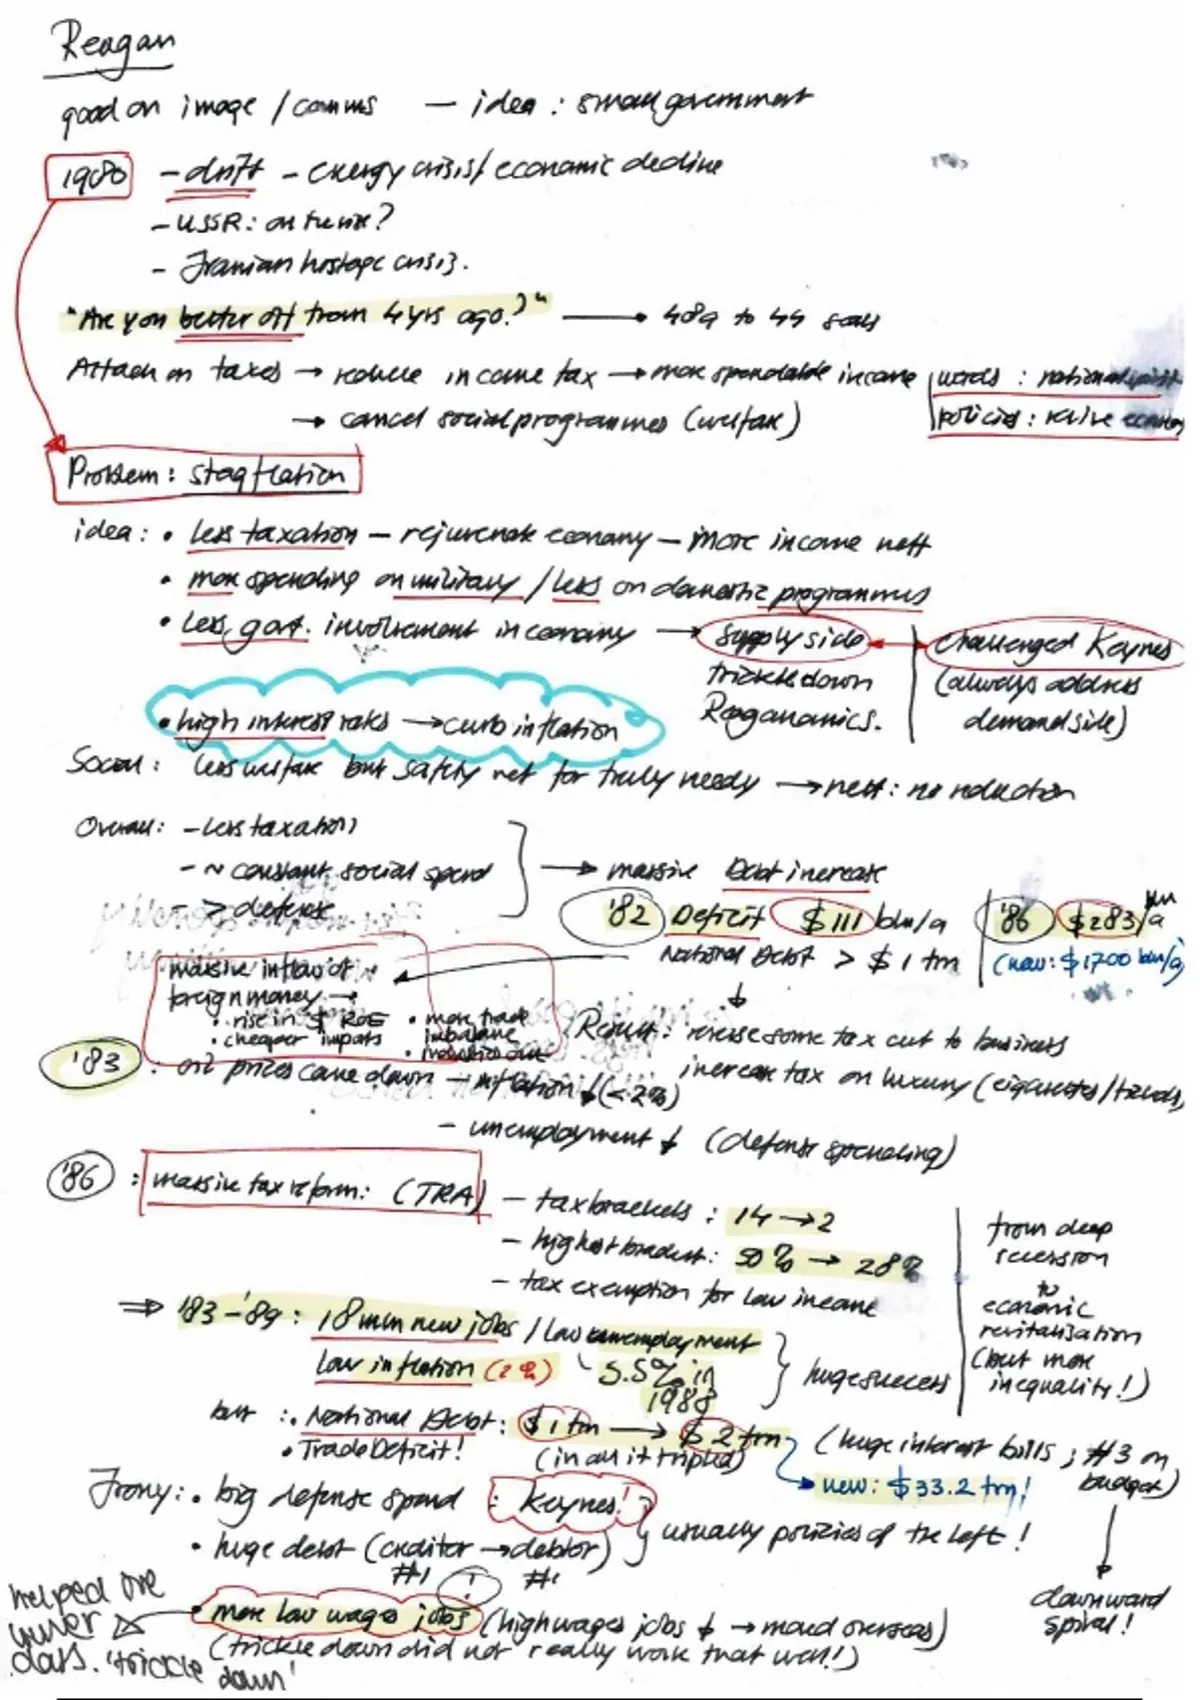 Reagan
good on image / comms — idea : small government
1980 – drift – energy crisis / economic decline
– USSR: on the rise?
– Iranian hostage crisis.
"Are you better off from 4 yrs ago?" → 489 to 44 seats
Attack on taxes → reduce income tax → more spendable income | words : national spirit
→ cancel social programmes (welfare) | policies : revive economy
Problem : stagflation
idea : • less taxation – rejuvenate economy – more income nett
• more spending on military / less on domestic programmes
• less govt. involvement in economy → supply side ↔ challenged Keynes
trickle down (always address
Reaganomics. demand side)
• high interest rates → curb inflation
Social : less welfare but safety net for truly needy → nett : no reduction
Overall : – less taxation
– ~ constant social spend → massive Debt increase
– > defense
'82 Deficit $111 bln/a | '86 $283/a bln
National Debt > $1 trn (now: $1700 bln/a)
massive inflow of
foreign money →
• rise in $ ROE • more trade
• cheaper imports imbalance
• industries out
Result : reverse some tax cut to business
increase tax on luxury (cigarettes /
'83 : oil prices came down – inflation ↓ (<2%)
– unemployment ↓ (defense spending)
'86 : massive tax reform: (TRA) – tax brackets : 14 → 2
– highest bracket: 50% → 28%
– tax exemption for low income
from deep
recession
to
economic
revitalisation
(but more
inequality!)
⇒ '83 – '89 : 18 mln new jobs / low unemployment
low inflation (2%) 5.5% in
1988
huge success
but : • National Debt : $1 trn → $2 trn (huge interest bills ; #3 on
budget)
• Trade Deficit! (in all it tripled)
→ now: $33.2 trn!
Irony : • big defense spend : Keynes!
• huge debt (creditor → debtor) usually policies of the left !
#1 #1
downward
spiral!
• more low wages jobs (high wages jobs ↓ → moved overseas)
(trickle down did not really work that well!)
helped the
lower
class. 'trickle
down'